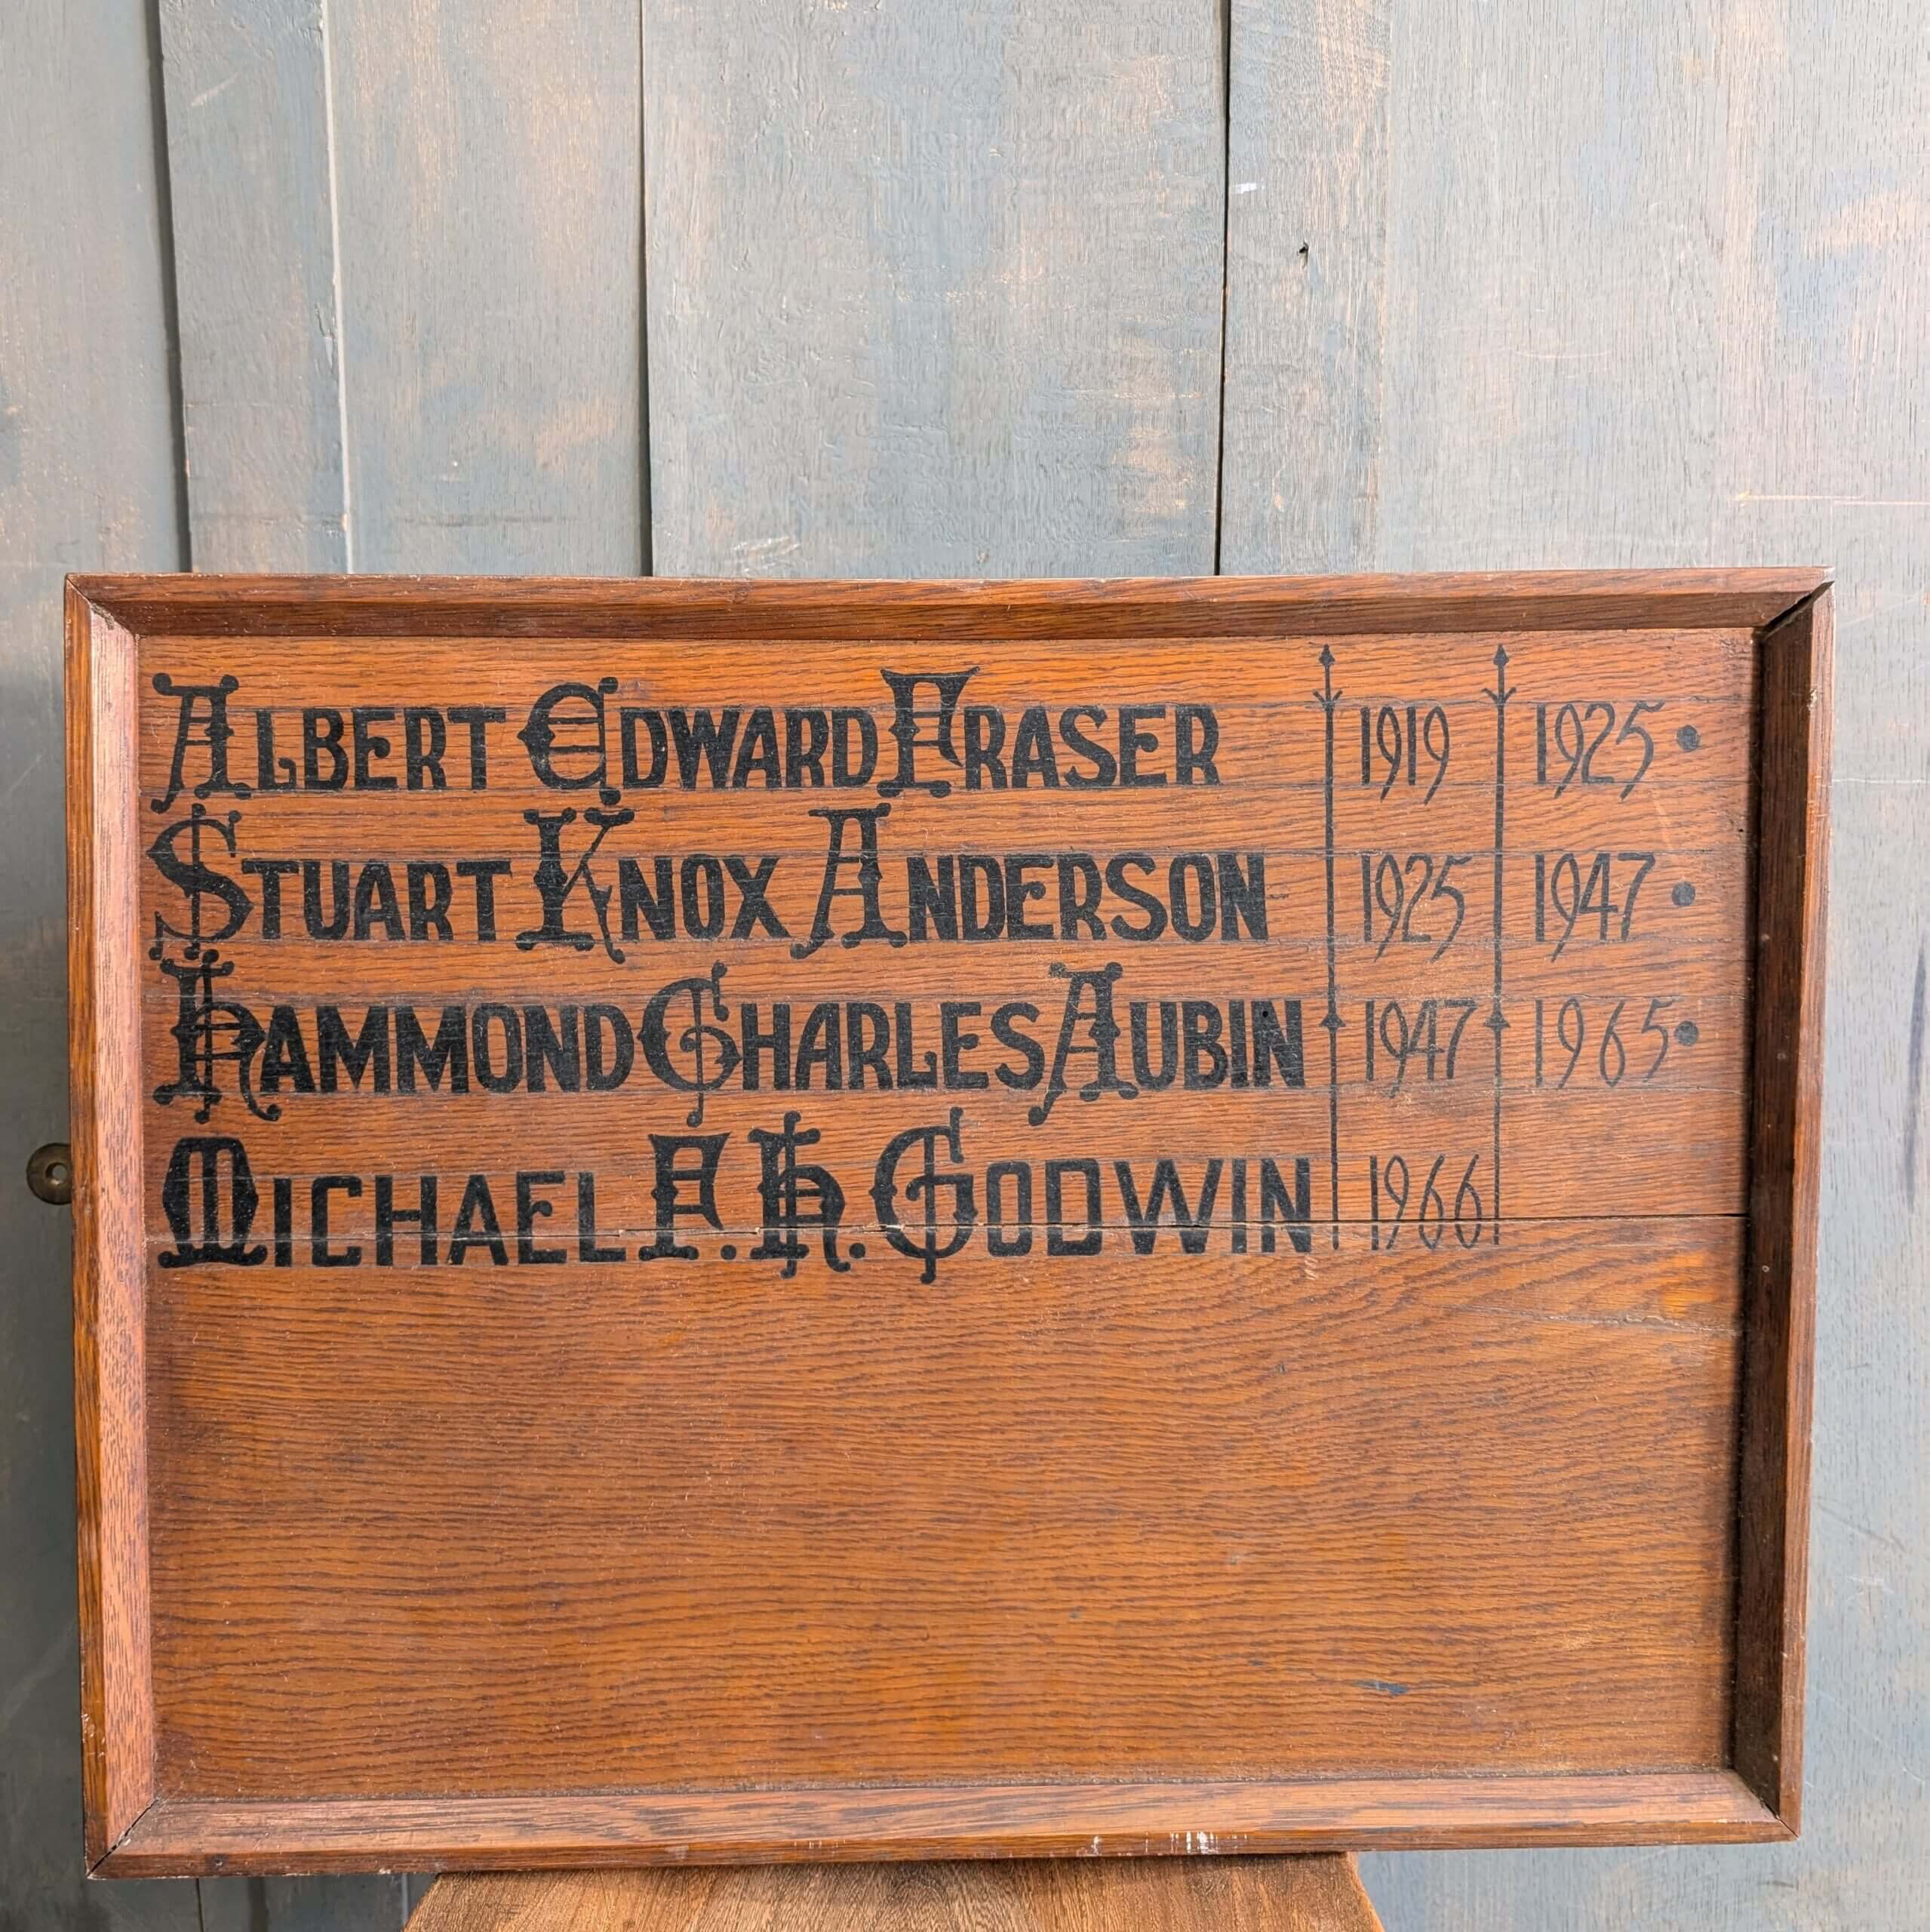 ALBERT EDWARD FRASER 1919 1925 •
STUART KNOX ANDERSON 1925 1947 •
HAMMOND CHARLES AUBIN 1947 1965 •
MICHAEL F. H. GODWIN 1966